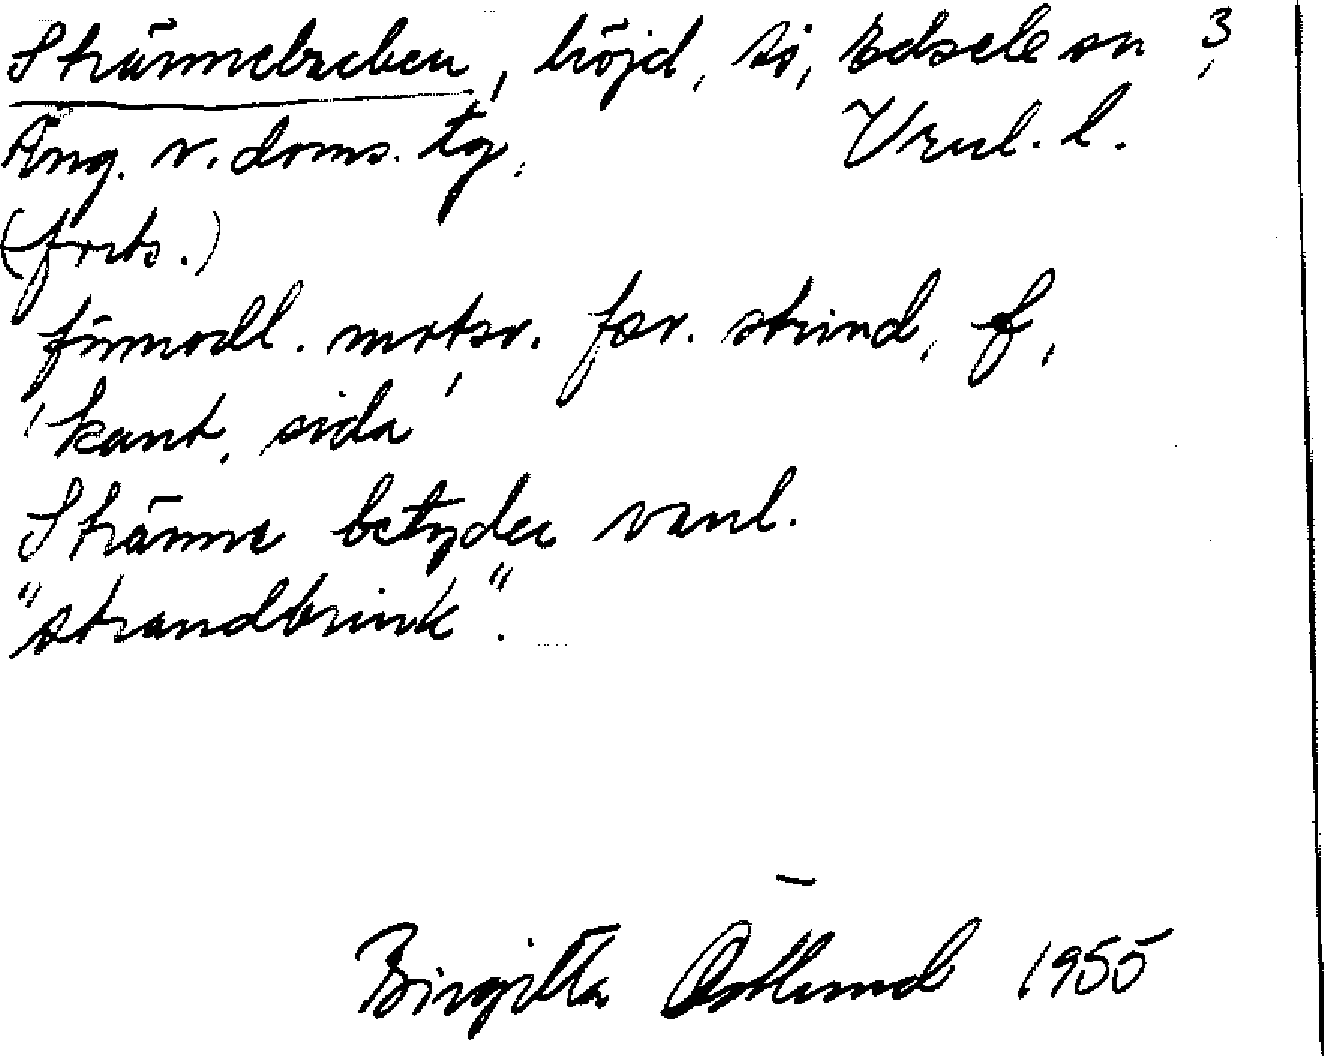 Strännebacken, höjd, si, Edsele sn 3,
Ång. v. doms. tg. Vrnl. l.
(forts.)
förmodl. motsv. fsv. strind, f,
'kant, sida'
Stränne betyder vanl.
"strandbrink".
Birgitta Östlund 1955